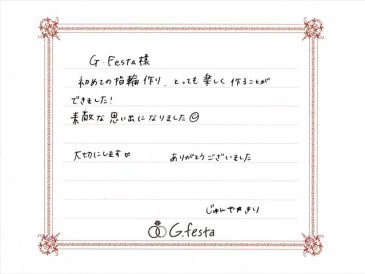 G.Festa様
初めての指輪作り、とっても楽しく作ることが
できました!
素敵な思い出になりました☺
大切にします♡ ありがとうございました
G.festa